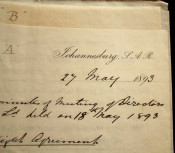 B
A
Johannesburg, S.A.R.
27 May 1893
Minutes of Meeting of Directors
Ld held on 18th May 1893
Agreement